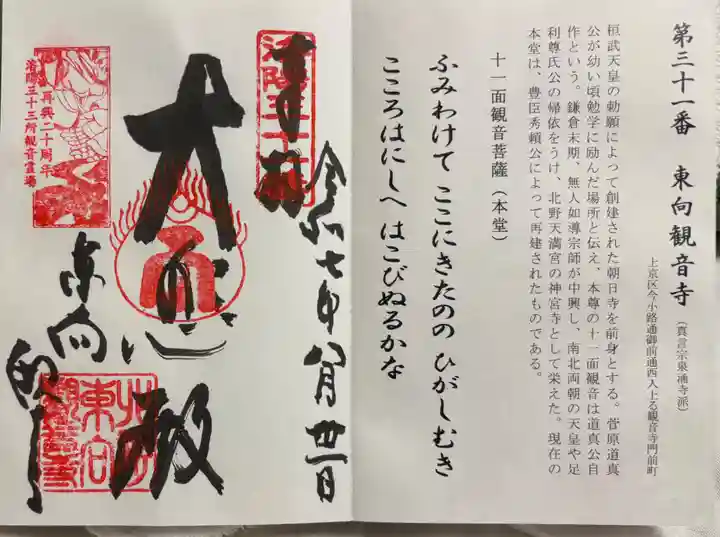 第三十一番 東向観音寺（真言宗泉涌寺派）
上京区今小路通御前通西入上る観音寺門前町
桓武天皇の勅願によって創建された朝日寺を前身とする。菅原道真
公が幼い頃勉学に励んだ場所と伝え、本尊の十一面観音は道真公自
作という。鎌倉末期、無人如導宗師が中興し、南北両朝の天皇や足
利尊氏公の帰依をうけ、北野天満宮の神宮寺として栄えた。現在の
本堂は、豊臣秀頼公によって再建されたものである。
十一面観音菩薩（本堂）
ふみわけて ここにきたのの ひがしむき
こころはにしへ はこびぬるかな
奉拝
令和七年八月卅一日
大悲殿
東向
再興二十周年
洛陽三十三所観音霊場